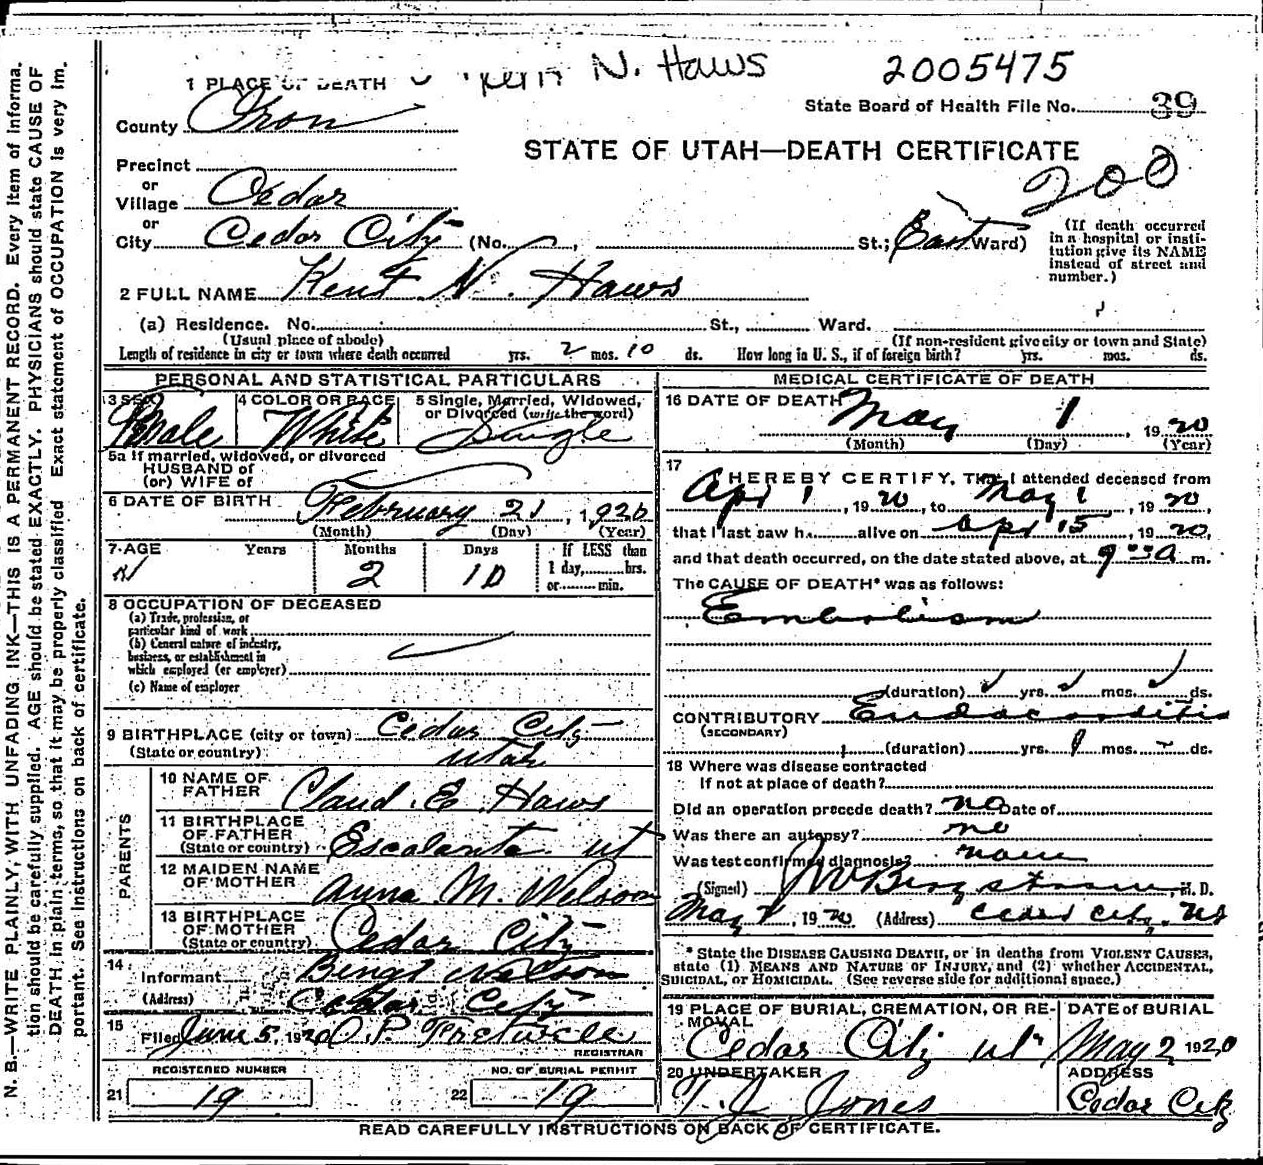 N. B.—WRITE PLAINLY, WITH UNFADING INK—THIS IS A PERMANENT RECORD. Every item of informa-
tion should be carefully supplied. AGE should be stated EXACTLY. PHYSICIANS should state CAUSE OF
DEATH in plain terms, so that it may be properly classified. Exact statement of OCCUPATION is very im-
portant. See instructions on back of certificate.
Kent N. Haws
2005475
1 PLACE OF DEATH
State Board of Health File No. 39
County Iron
STATE OF UTAH—DEATH CERTIFICATE
200
Precinct
or
Village Cedar
or
City Cedar City (No. , St.; East Ward)
(If death occurred
in a hospital or insti-
tution give its NAME
instead of street and
number.)
2 FULL NAME Kent N. Haws
(a) Residence. No. St., Ward.
(Usual place of abode) (If non-resident give city or town and State)
Length of residence in city or town where death occurred yrs. 2 mos. 10 ds. How long in U. S., if of foreign birth? yrs. mos. ds.
PERSONAL AND STATISTICAL PARTICULARS
3 SEX Male
4 COLOR OR RACE White
5 Single, Married, Widowed,
or Divorced (write the word)
Single
5a If married, widowed, or divorced
HUSBAND of
(or) WIFE of
6 DATE OF BIRTH February 21, 1920
(Month) (Day) (Year)
7 AGE Years Months Days If LESS than
1 day, hrs.
or min.
2 10
8 OCCUPATION OF DECEASED
(a) Trade, profession, or
particular kind of work
(b) General nature of industry,
business, or establishment in
which employed (or employer)
(c) Name of employer
9 BIRTHPLACE (city or town) Cedar City
(State or country) Utah
PARENTS
10 NAME OF
FATHER Claud E Haws
11 BIRTHPLACE
OF FATHER
(State or country) Escalante ut
12 MAIDEN NAME
OF MOTHER Anna M. Nelson
13 BIRTHPLACE
OF MOTHER
(State or country) Cedar City
14 Informant Bengt Nelson
(Address) Cedar City
15 Filed June 5, 1920
REGISTRAR
REGISTERED NUMBER
21 19
NO. OF BURIAL PERMIT
22 19
MEDICAL CERTIFICATE OF DEATH
16 DATE OF DEATH
May 1, 1920
(Month) (Day) (Year)
17 I HEREBY CERTIFY, That I attended deceased from
Apr 1, 1920, to May 1, 1920,
that I last saw h alive on Apr 15, 1920,
and that death occurred, on the date stated above, at 9:30 a m.
The CAUSE OF DEATH* was as follows:
Embolism
(duration) yrs. mos. ds.
CONTRIBUTORY Endocarditis
(SECONDARY)
(duration) yrs. 1 mos. - ds.
18 Where was disease contracted
If not at place of death?
Did an operation precede death? no Date of
Was there an autopsy? no
Was test confirmed diagnosis? none
(Signed) Bergstrom, M. D.
May, 1920 (Address) Cedar City, Ut
* State the DISEASE CAUSING DEATH, or in deaths from VIOLENT CAUSES,
state (1) MEANS AND NATURE OF INJURY, and (2) whether ACCIDENTAL,
SUICIDAL, or HOMICIDAL. (See reverse side for additional space.)
19 PLACE OF BURIAL, CREMATION, OR RE-
MOVAL
Cedar City ut
DATE of BURIAL
May 2 1920
20 UNDERTAKER
T. J. Jones
ADDRESS
Cedar City
READ CAREFULLY INSTRUCTIONS ON BACK OF CERTIFICATE.